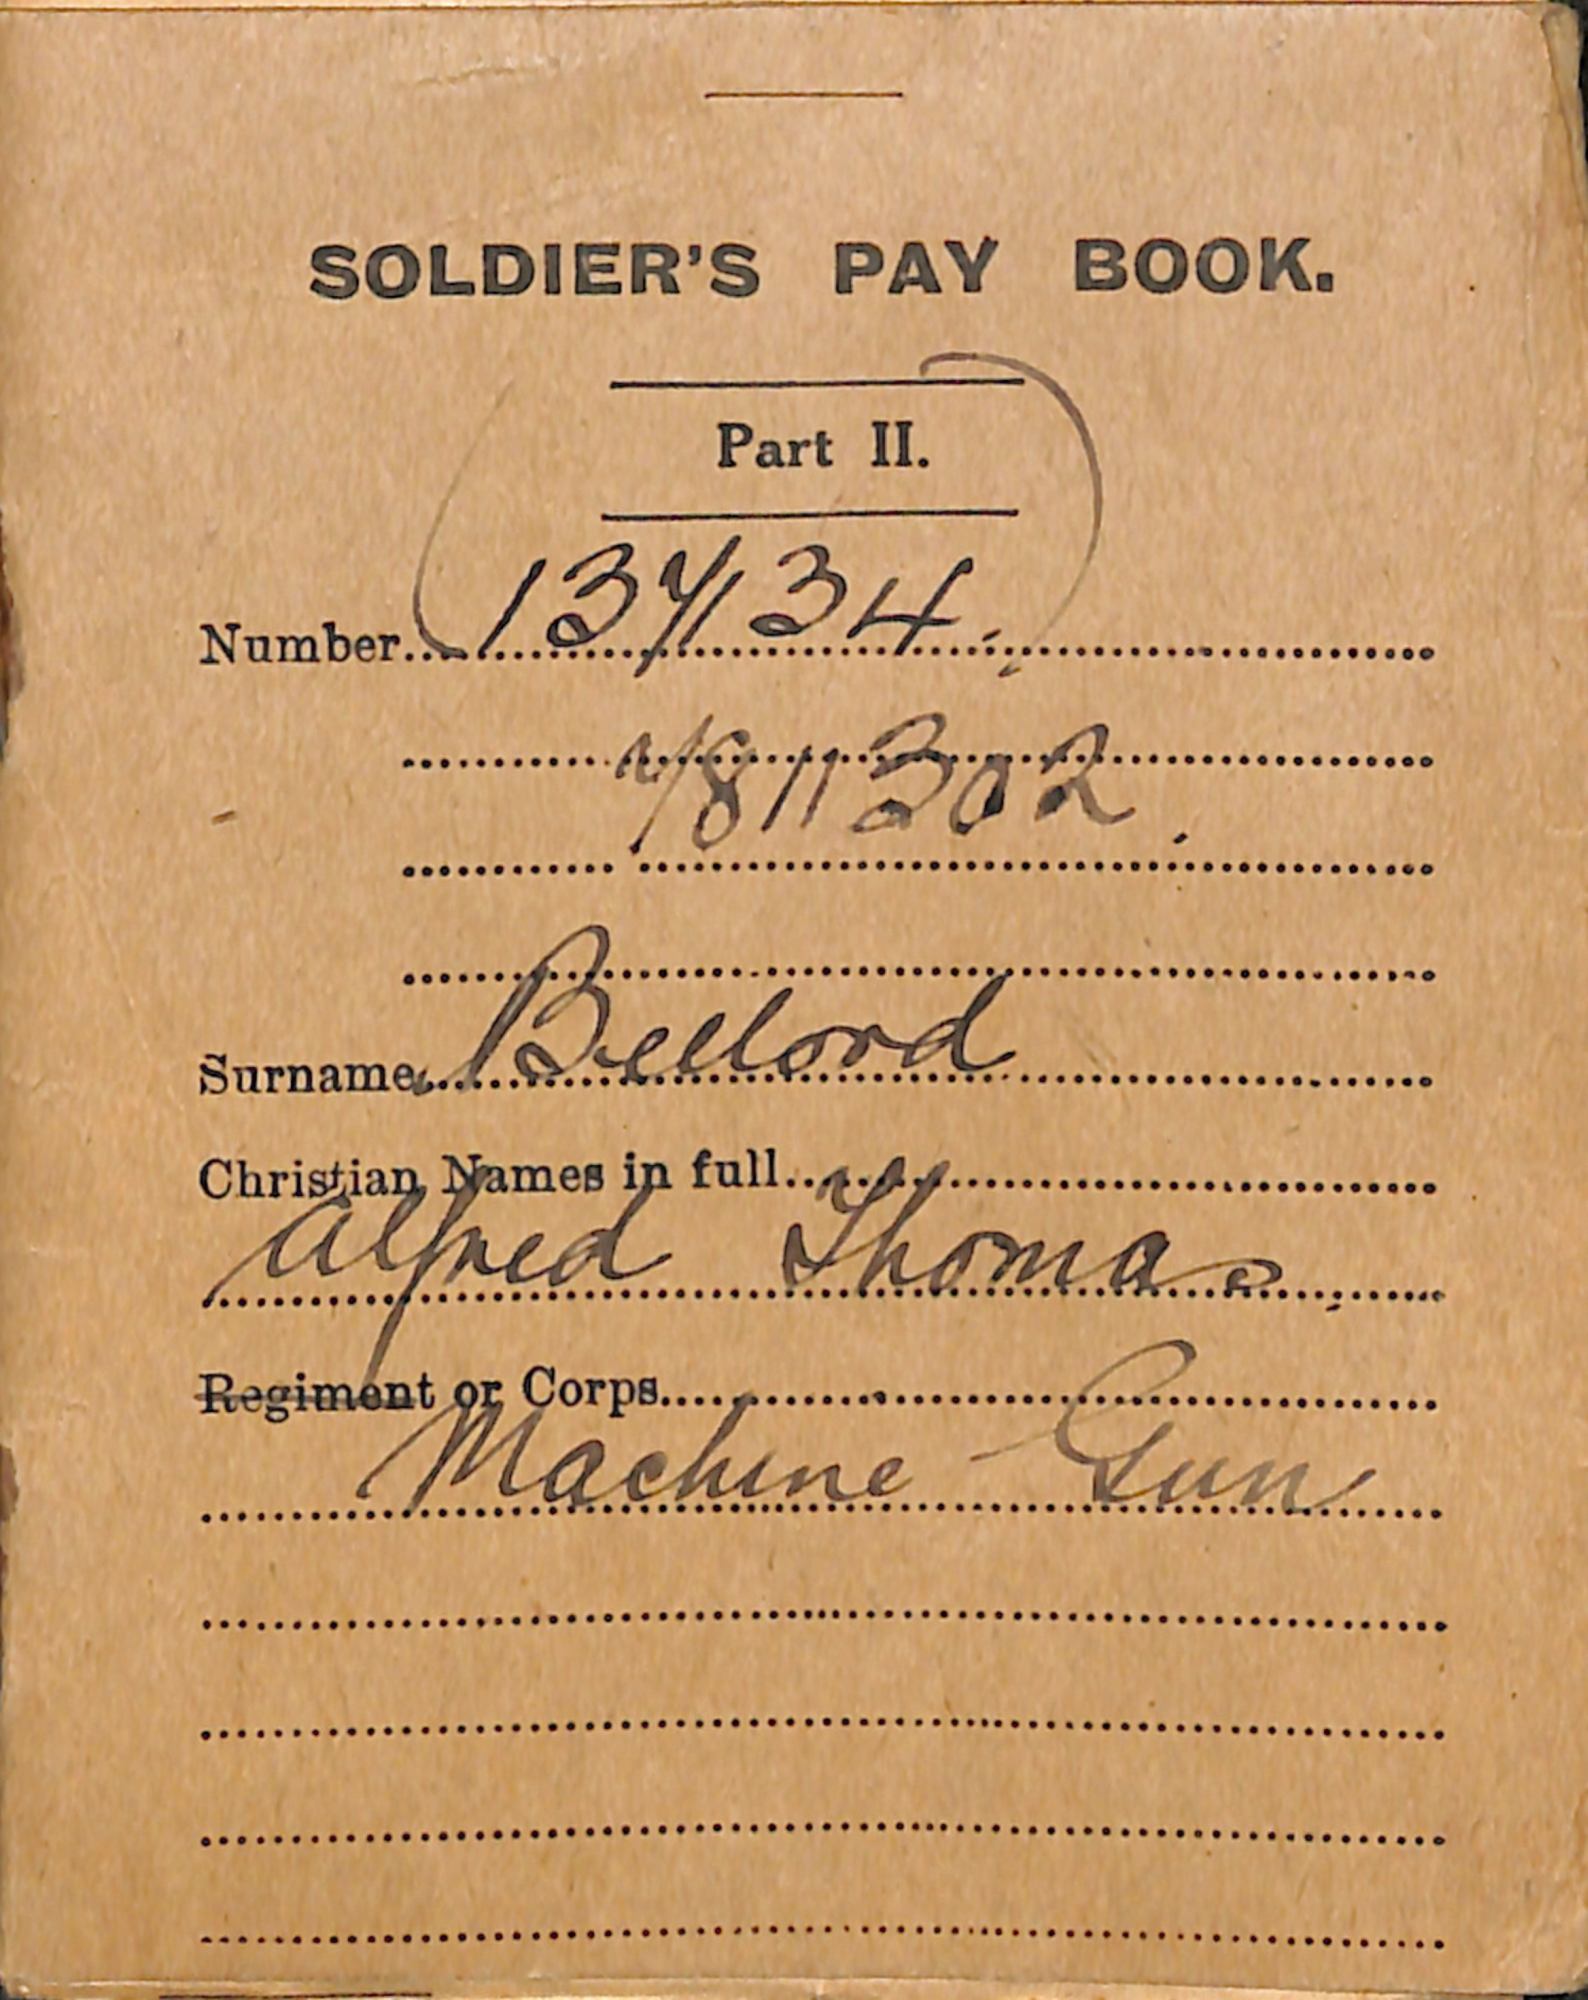 SOLDIER'S PAY BOOK.
Part II.
Number 137134.
7811302.
Surname Bellord
Christian Names in full
Alfred Thomas.
Regiment or Corps
Machine Gun